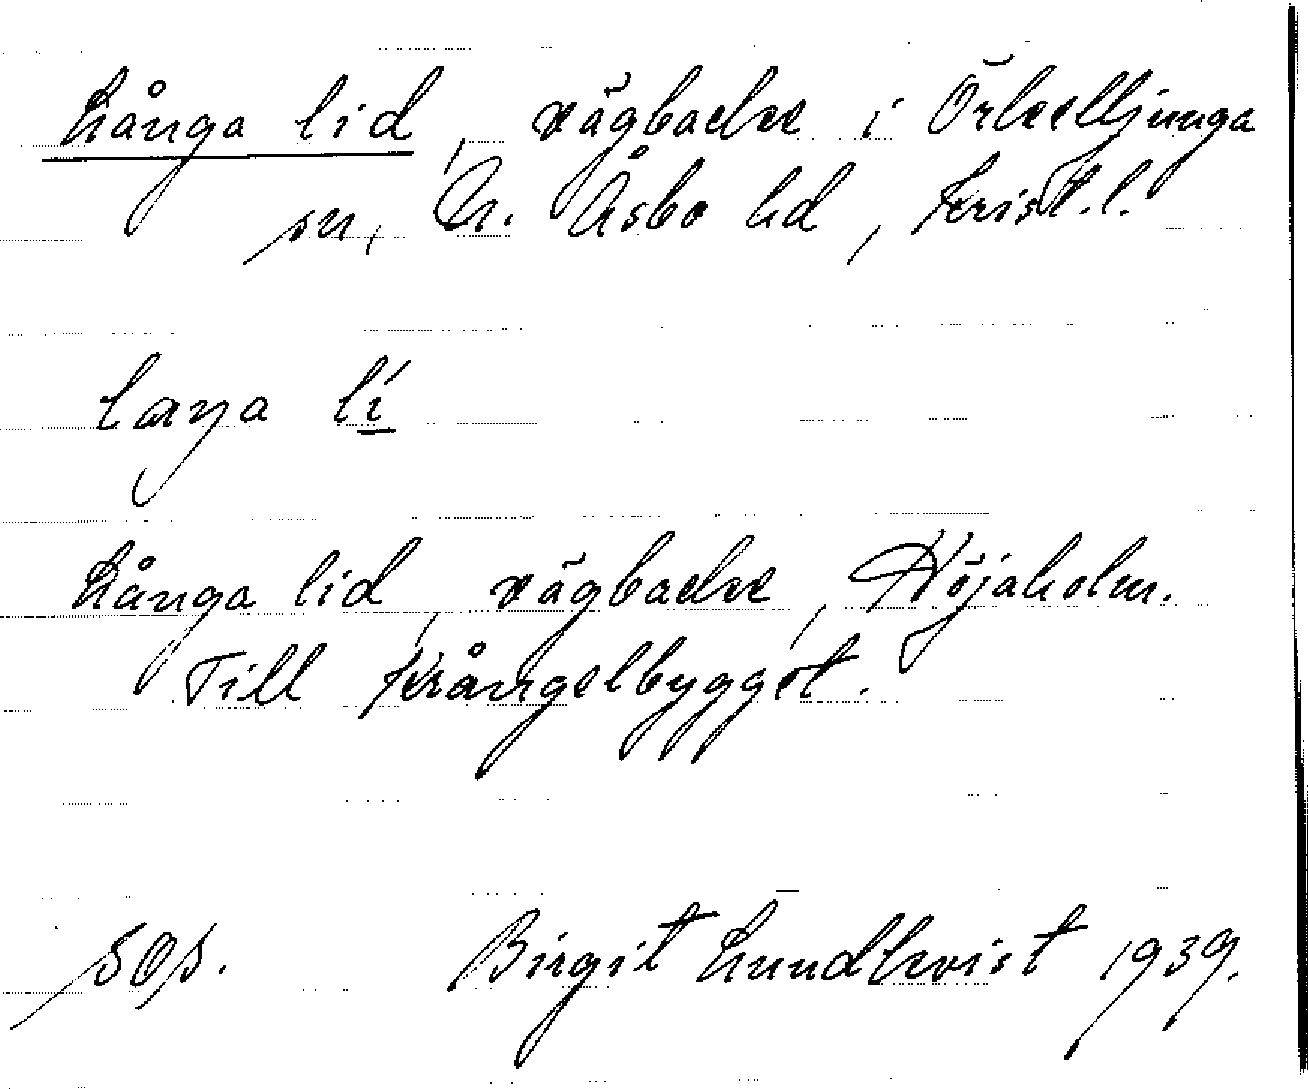 Långa lid, vägbacke i Örkelljunga
sn, N. Åsbo hd, Krist.l.
laŋa lí
Långa lid, vägbacke, Höjaholm.
Till Krångelbygget.
sos. Birgit Lundkvist 1939.